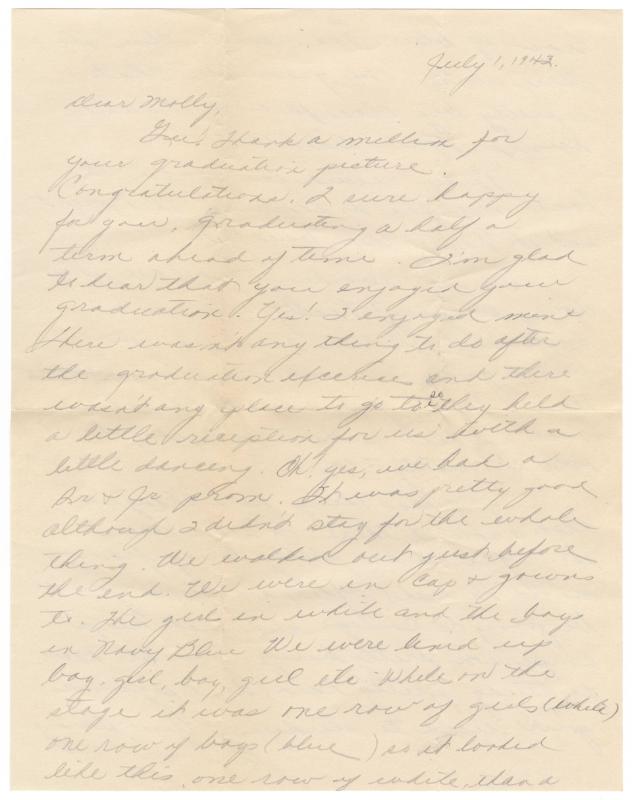 July 1, 1943.
Dear Molly,
Gee! Thank a million for
your graduation picture.
Congratulations. I sure happy
for you, graduating a half a
term ahead of time. I'm glad
to hear that you enjoyed your
graduation. Yes! I enjoyed mine
There wasn't any thing to do after
the graduation excercise and there
wasn't any place to go to so they held
a little reception for us with a
little dancing. Oh! yes, we had a
Sr & Jr prom. It was pretty good
although I didn't stay for the whole
thing. We walked out just before
the end. We were in cap & gowns
to. The girls in white and the boys
in Navy Blue We were lined up
boy, girl, boy, girl etc. While on the
stage it was one row of girls (white)
one row of boys (blue) so it looked
like this, one row of white, than a